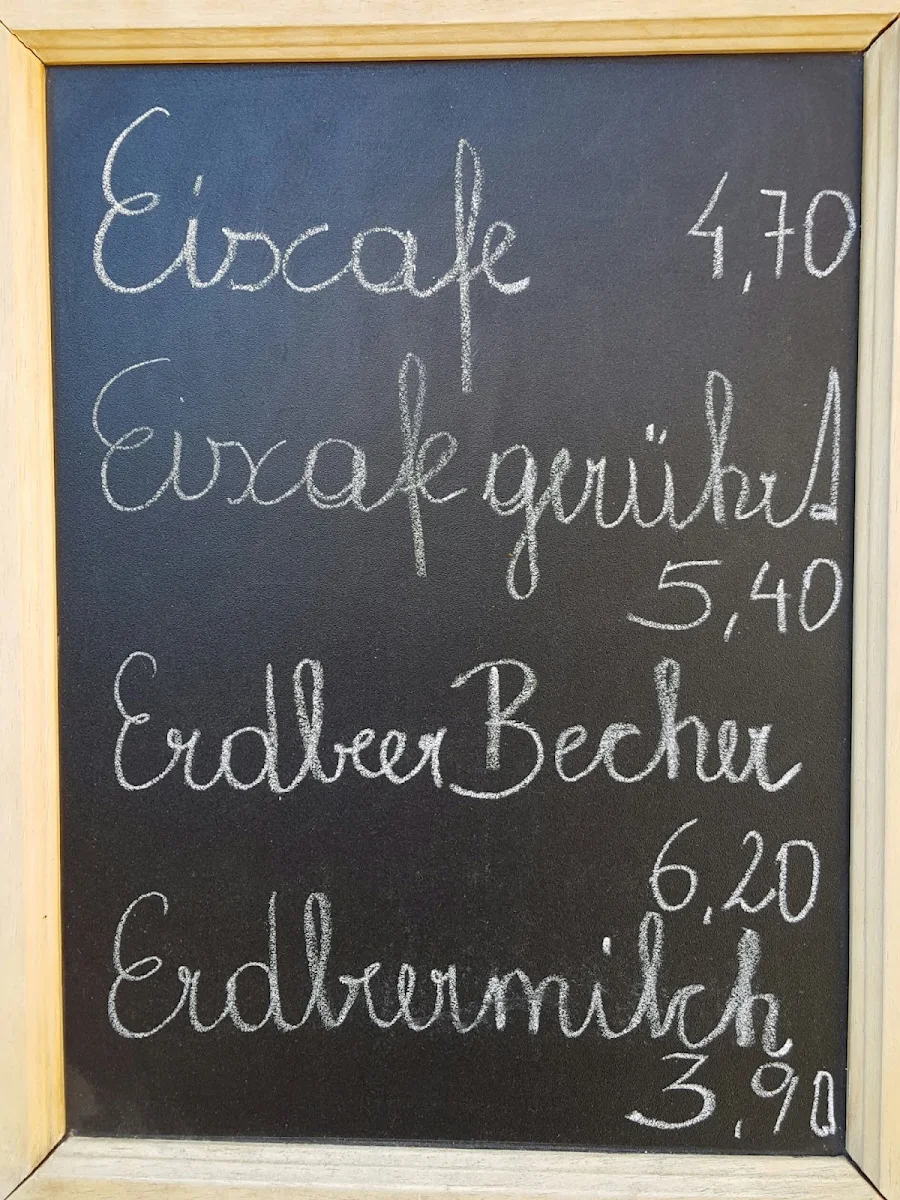 Eiscafe 4,70
Eiscafe gerührt
5,40
Erdbeer Becher
6,20
Erdbeermilch
3,90